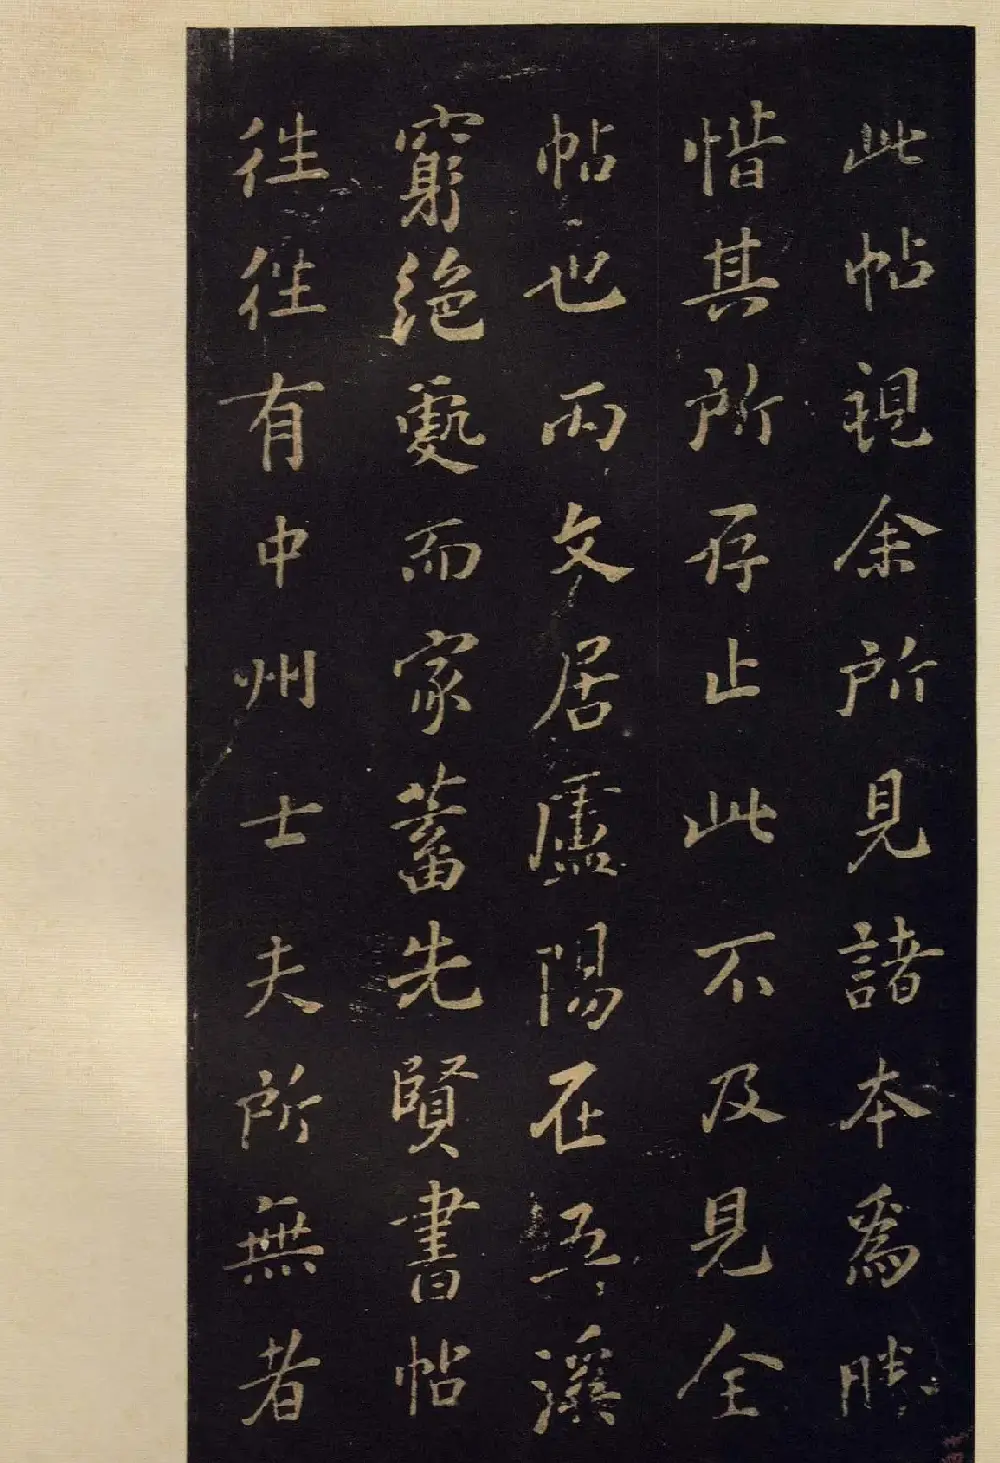 此帖視余所見諸本為勝
惜其所存止此不及見全
帖也丙文居廬陽在五溪
窮絕處而家蓄先賢書帖
往往有中州士夫所無者